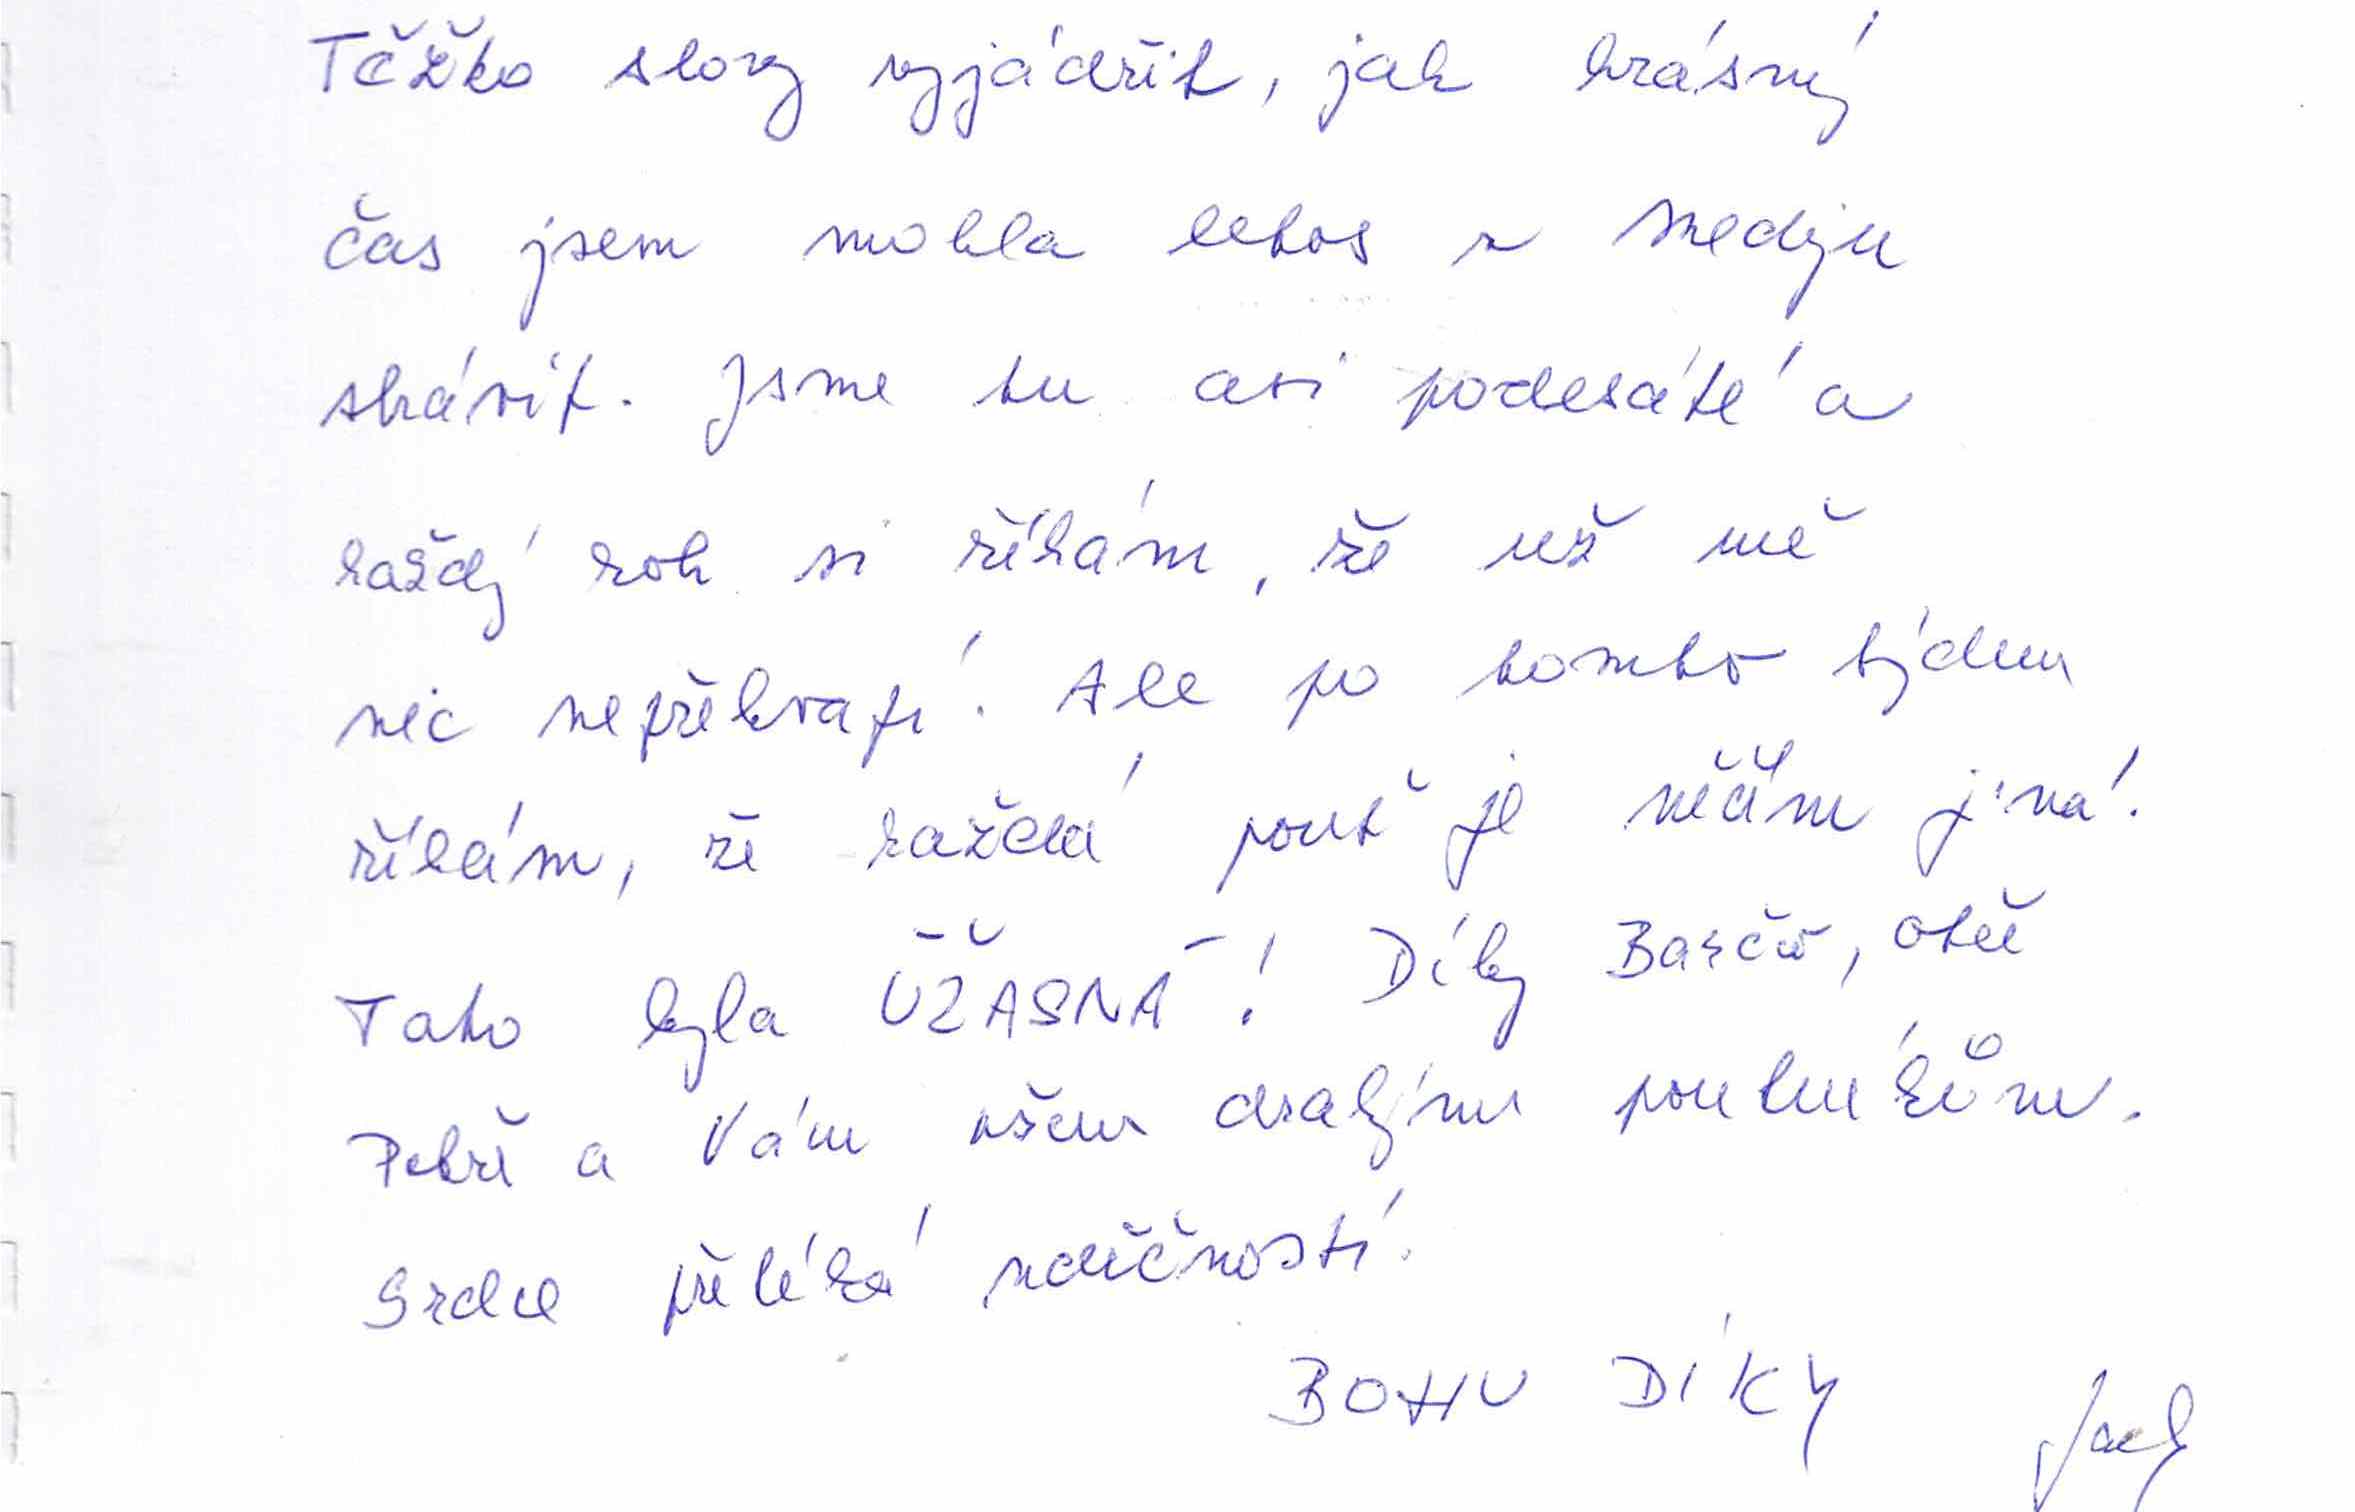 Těžko slovy vyjádřit, jak krásný
čas jsem mohla letos v Medžu
strávit. Jsme tu asi podesáté a
každý rok si říkám, že už mě
nic nepřekvapí. Ale po tomto týdnu
říkám, že každá pouť je něčím jiná.
Tato byla ÚŽASNÁ! Díky Barčo, otče
Petře a Vám všem drahým poutníkům.
Srdce přetéká vděčností.
BOHU DÍKY